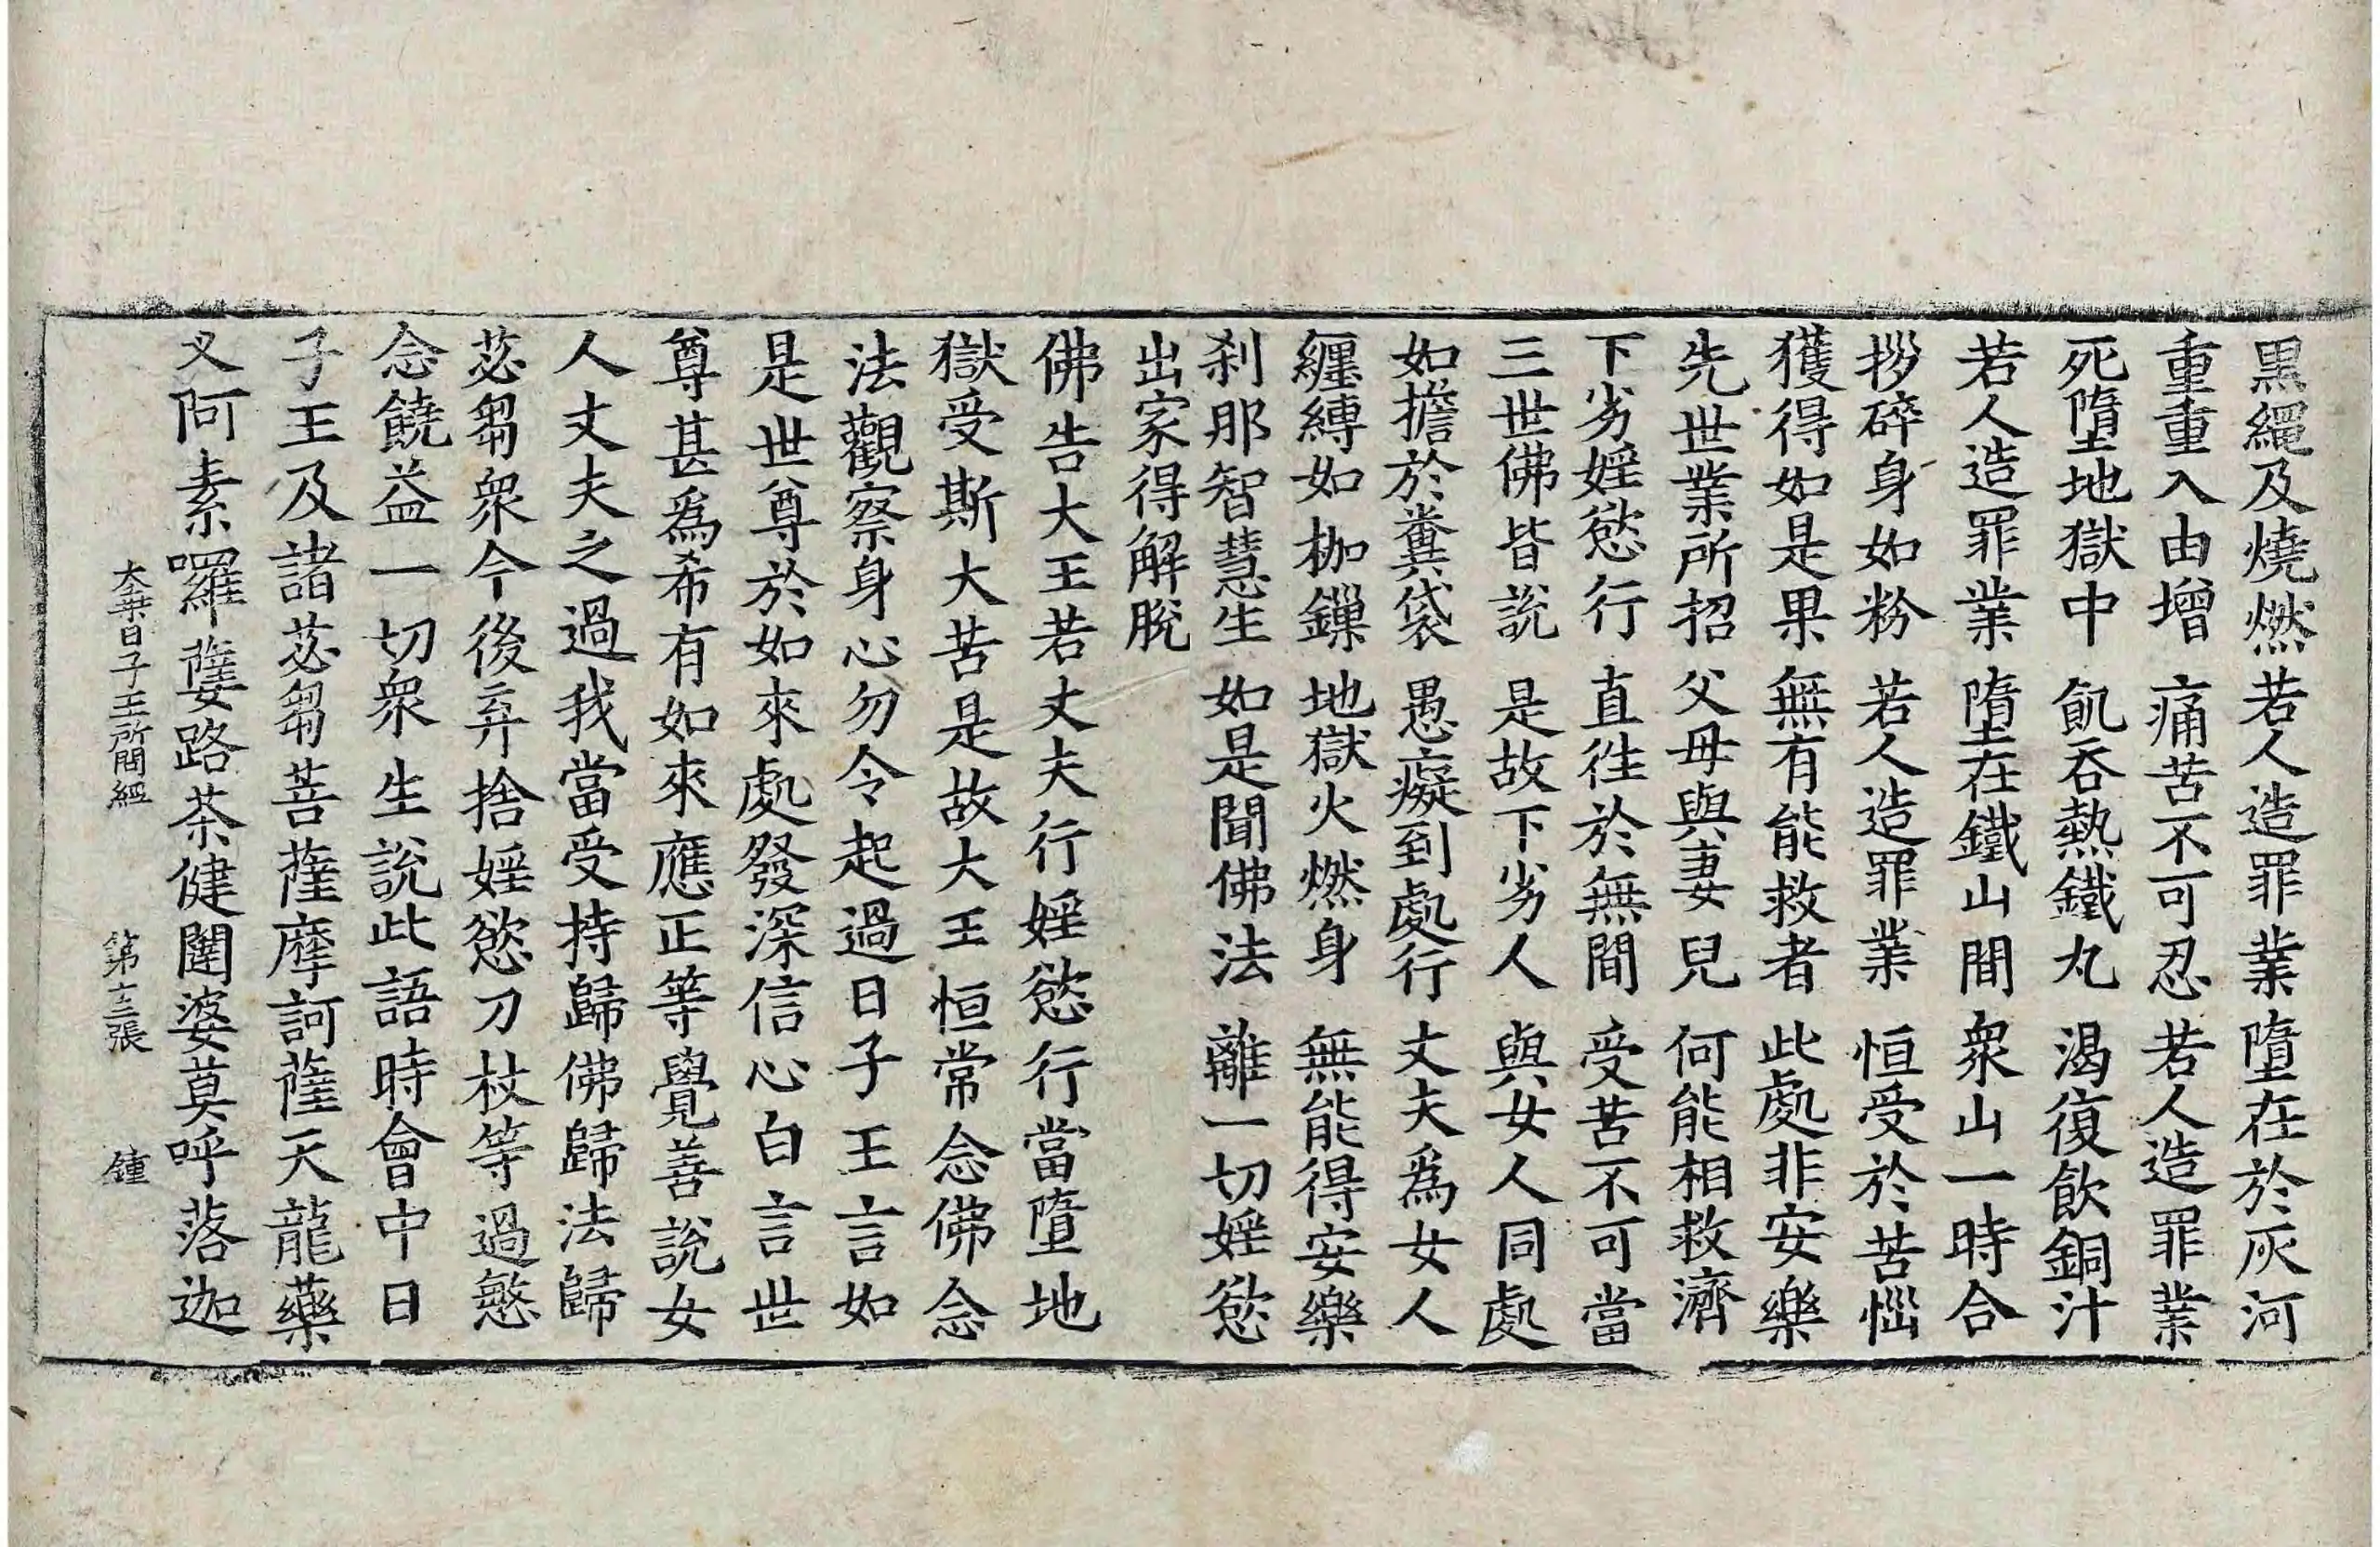 黒繩及燒燃 若人造罪業 墮在於灰河
重重入由增 痛苦不可忍 若人造罪業
死墮地獄中 飢吞熱鐵丸 渴復飲銅汁
若人造罪業 墮在鐵山間 衆山一時合
拶碎身如粉 若人造罪業 恒受於苦惱
獲得如是果 無有能救者 此處非安樂
先世業所招 父母與妻兒 何能相救濟
下劣婬慾行 直徃於無間 受苦不可當
三世佛皆說 是故下劣人 與女人同處
如擔於糞袋 愚癡到處行 丈夫爲女人
纏縛如枷鏁 地獄火燃身 無能得安樂
刹那智慧生 如是聞佛法 離一切婬慾
出家得解脫
佛告大王若丈夫行婬慾行當墮地
獄受斯大苦是故大王恒常念佛念
法觀察身心勿令起過日子王言如
是世尊於如來處發深信心白言世
尊甚爲希有如來應正等覺善說女
人丈夫之過我當受持歸佛歸法歸
苾芻衆今後弃捨婬慾刀杖等過慜
念饒益一切衆生說此語時會中日
子王及諸苾芻菩薩摩訶薩天龍藥
叉阿素囉蘖路茶健闥婆莫呼落迦
大乘日子王所問經 第十三張 鍾